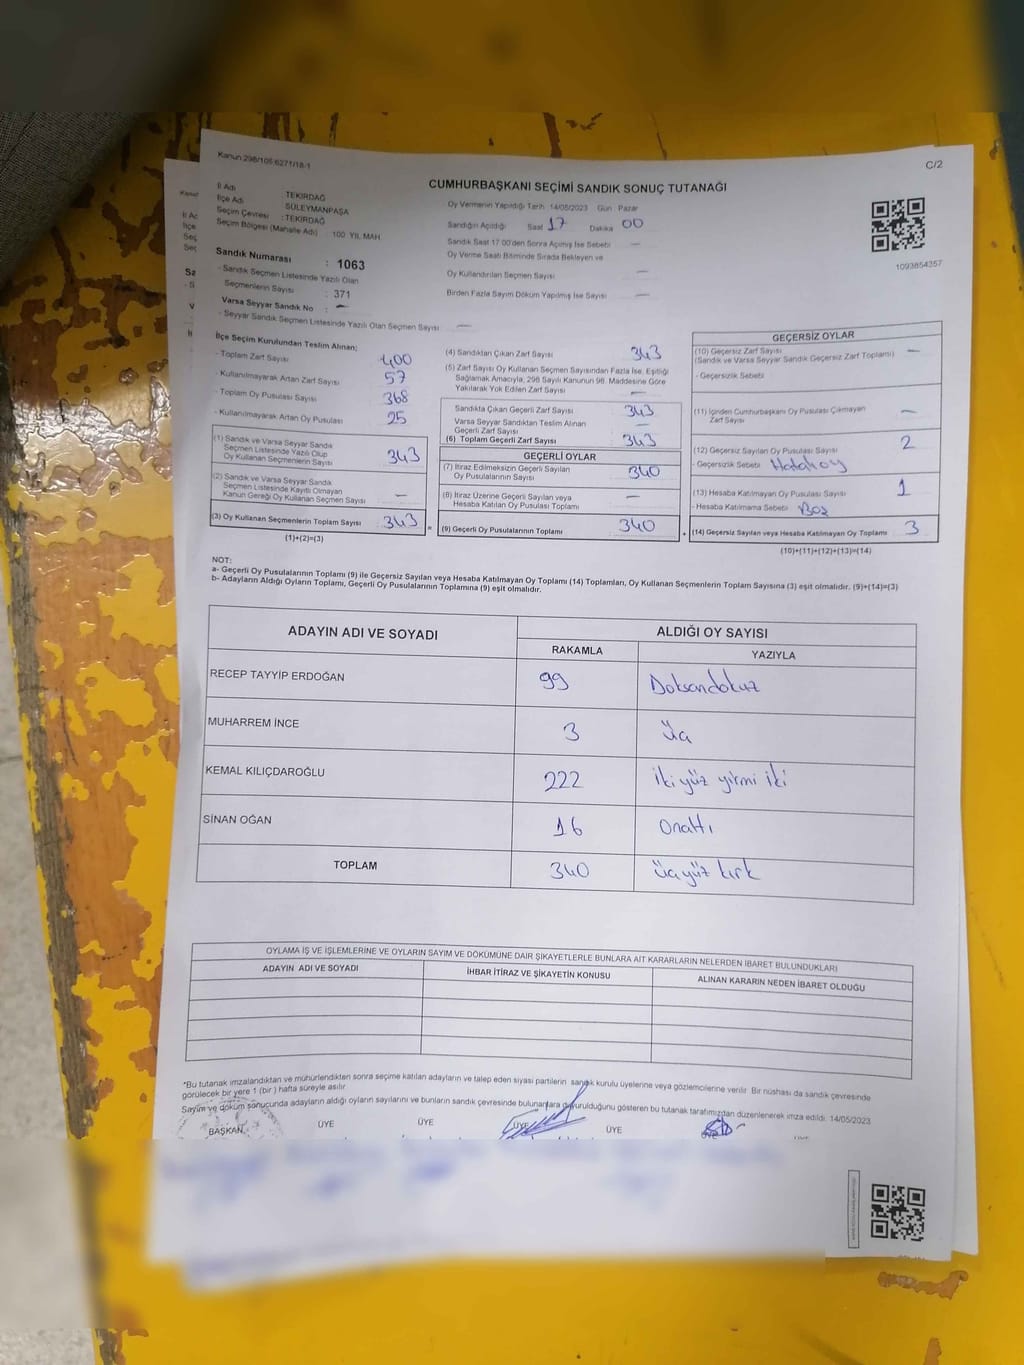 Kanun:298/105;6271/18/1
C/2
CUMHURBAŞKANI SEÇİMİ SANDIK SONUÇ TUTANAĞI
İl Adı : TEKİRDAĞ
İlçe Adı : SÜLEYMANPAŞA
Seçim Çevresi : TEKİRDAĞ
Seçim Bölgesi (Mahalle Adı) : 100. YIL MAH.
Sandık Numarası : 1063
- Sandık Seçmen Listesinde Yazılı Olan
Seçmenlerin Sayısı : 371
Varsa Seyyar Sandık No : —
- Seyyar Sandık Seçmen Listesinde Yazılı Olan Seçmen Sayısı —
Oy Vermenin Yapıldığı Tarih 14/05/2023 Gün Pazar
Sandığın Açıldığı Saat 17 Dakika 00
Sandık Saat 17:00'den Sonra Açılmış İse Sebebi —
Oy Verme Saati Bitiminde Sırada Bekleyen ve
Oy Kullandırılan Seçmen Sayısı —
Birden Fazla Sayım Döküm Yapılmış İse Sayısı —
1093854357
İlçe Seçim Kurulundan Teslim Alınan;
- Toplam Zarf Sayısı 400
- Kullanılmayarak Artan Zarf Sayısı 57
- Toplam Oy Pusulası Sayısı 368
- Kullanılmayarak Artan Oy Pusulası 25
(1) Sandık ve Varsa Seyyar Sandık
Seçmen Listesinde Yazılı Olup
Oy Kullanan Seçmenlerin Sayısı 343
(2) Sandık ve Varsa Seyyar Sandık
Seçmen Listesinde Kayıtlı Olmayan
Kanun Gereği Oy Kullanan Seçmen Sayısı —
(3) Oy Kullanan Seçmenlerin Toplam Sayısı 343
(1)+(2)=(3)
(4) Sandıktan Çıkan Zarf Sayısı 343
(5) Zarf Sayısı Oy Kullanan Seçmen Sayısından Fazla İse, Eşitliği
Sağlamak Amacıyla, 298 Sayılı Kanunun 98. Maddesine Göre
Yakılarak Yok Edilen Zarf Sayısı —
Sandıkta Çıkan Geçerli Zarf Sayısı 343
Varsa Seyyar Sandıktan Teslim Alınan
Geçerli Zarf Sayısı —
(6) Toplam Geçerli Zarf Sayısı 343
GEÇERLİ OYLAR
(7) İtiraz Edilmeksizin Geçerli Sayılan
Oy Pusulalarının Sayısı 340
(8) İtiraz Üzerine Geçerli Sayılan veya
Hesaba Katılan Oy Pusulası Toplamı —
(9) Geçerli Oy Pusulalarının Toplamı 340
GEÇERSİZ OYLAR
(10) Geçersiz Zarf Sayısı —
(Sandık ve Varsa Seyyar Sandık Geçersiz Zarf Toplamı)
- Geçersizlik Sebebi
(11) İçinden Cumhurbaşkanı Oy Pusulası Çıkmayan
Zarf Sayısı —
(12) Geçersiz Sayılan Oy Pusulası Sayısı 2
- Geçersizlik Sebebi Hatalı oy
(13) Hesaba Katılmayan Oy Pusulası Sayısı 1
- Hesaba Katılmama Sebebi Boş
(14) Geçersiz Sayılan veya Hesaba Katılmayan Oy Toplamı 3
(10)+(11)+(12)+(13)=(14)
NOT:
a- Geçerli Oy Pusulalarının Toplamı (9) ile Geçersiz Sayılan veya Hesaba Katılmayan Oy Toplamı (14) Toplamları, Oy Kullanan Seçmenlerin Toplam Sayısına (3) eşit olmalıdır. (9)+(14)=(3)
b- Adayların Aldığı Oyların Toplamı, Geçerli Oy Pusulalarının Toplamına (9) eşit olmalıdır.
ADAYIN ADI VE SOYADI ALDIĞI OY SAYISI
RAKAMLA YAZIYLA
RECEP TAYYİP ERDOĞAN 99 Doksandokuz
MUHARREM İNCE 3 Üç
KEMAL KILIÇDAROĞLU 222 iki yüz yirmi iki
SİNAN OĞAN 16 onaltı
TOPLAM 340 üçyüz kırk
OYLAMA İŞ VE İŞLEMLERİNE VE OYLARIN SAYIM VE DÖKÜMÜNE DAİR ŞİKAYETLERLE BUNLARA AİT KARARLARIN NELERDEN İBARET BULUNDUKLARI
ADAYIN ADI VE SOYADI İHBAR İTİRAZ VE ŞİKAYETİN KONUSU ALINAN KARARIN NEDEN İBARET OLDUĞU
*Bu tutanak imzalandıktan ve mühürlendikten sonra seçime katılan adayların ve talep eden siyasi partilerin sandık kurulu üyelerine veya gözlemcilerine verilir. Bir nüshası da sandık çevresinde
görülecek bir yere 1 (bir) hafta süreyle asılır.
Sayım ve döküm sonucunda adayların aldığı oyların sayılarını ve bunların sandık çevresinde bulunanlara duyurulduğunu gösteren bu tutanak tarafımızdan düzenlenerek imza edildi. 14/05/2023
BAŞKAN ÜYE ÜYE ÜYE ÜYE ÜYE